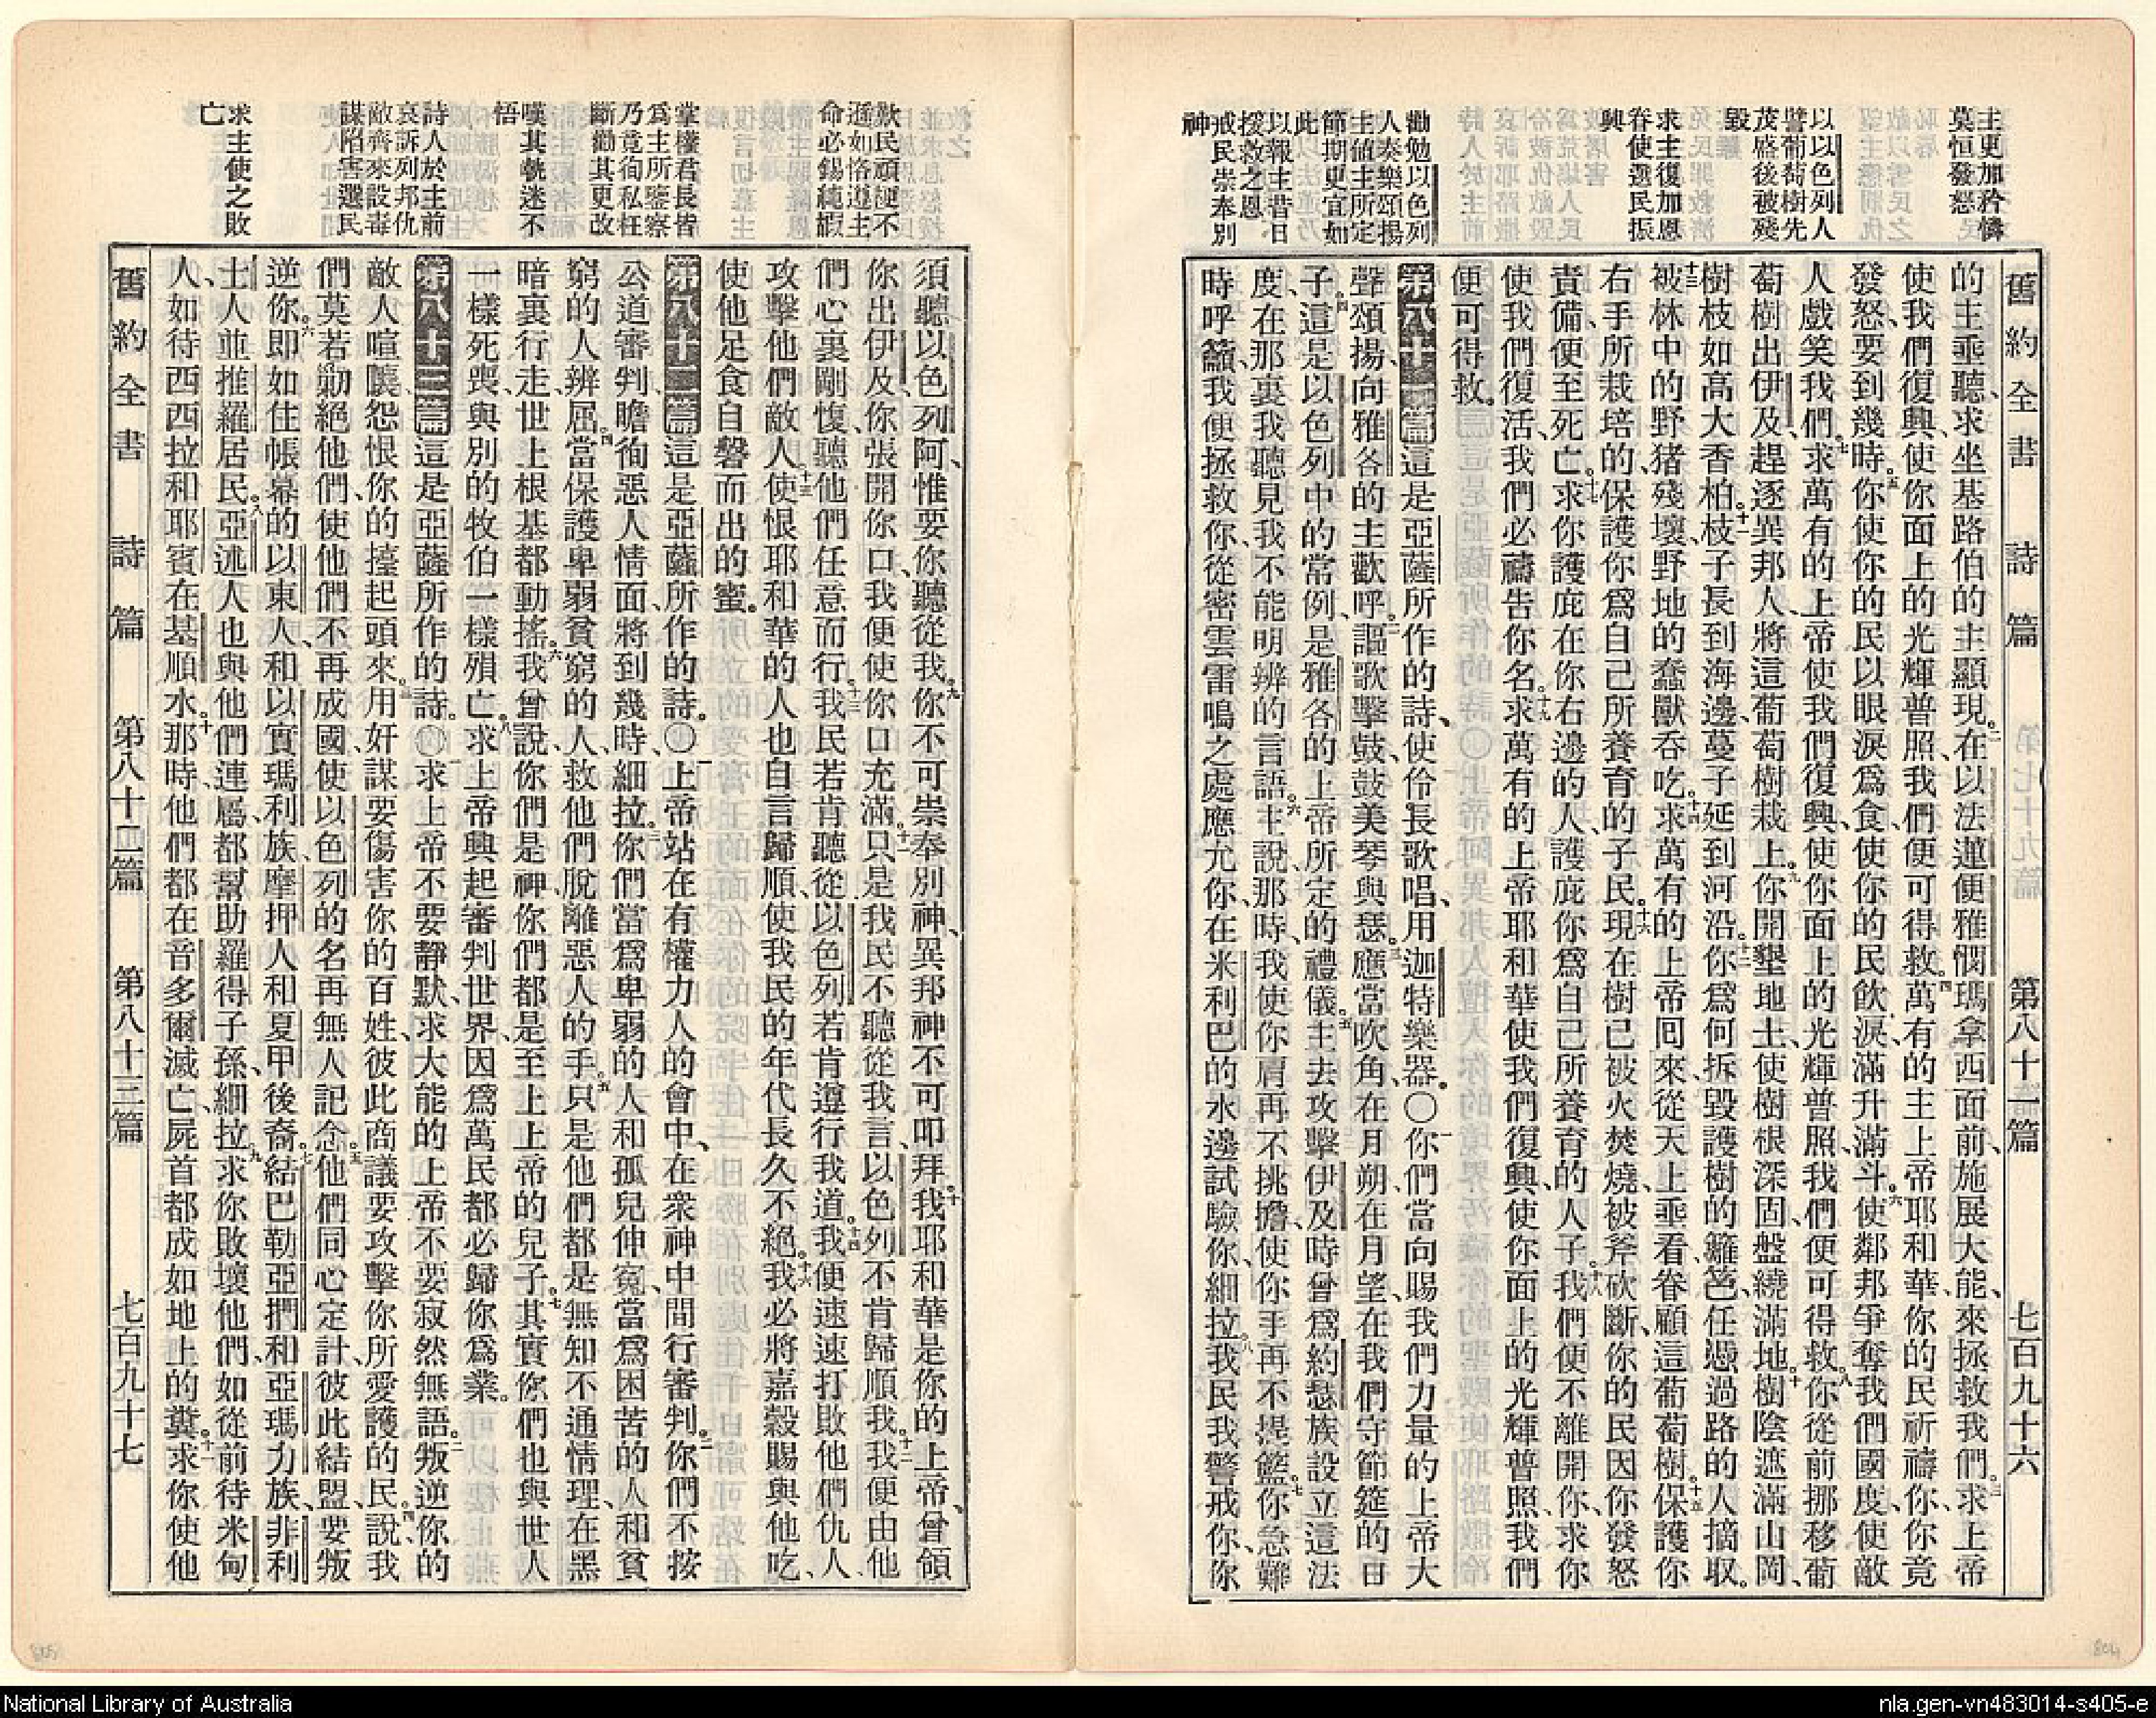 舊約全書 詩篇 第八十一篇 七百九十六
主更加矜憐
莫恒發怒
以以色列人
譬葡萄樹先
茂盛後被殘
毀
求主復加恩
眷使選民振
興
勸勉以色列
人奏樂頌揚
主值主所定
節期更宜如
此
以報主昔日
援救之恩
戒民崇奉別
神
的主垂聽、求坐基路伯的主顯現。二在以法蓮便雅憫瑪拿西面前、施展大能、來拯救我們。三求上帝
使我們復興、使你面上的光輝普照、我們便可得救。四萬有的主上帝耶和華、你的民祈禱你、你竟
發怒、要到幾時。五你使你的民以眼淚爲食、使你的民飲淚、滿升滿斗。六使鄰邦爭奪我們國度、使敵
人戲笑我們。七求萬有的上帝使我們復興、使你面上的光輝普照、我們便可得救。八你從前挪移葡
萄樹出伊及、趕逐異邦人、將這葡萄樹栽上。九你開墾地土、使樹根深固、盤繞滿地。十樹陰遮滿山岡、
樹枝如高大香柏。十一枝子長到海邊、蔓子延到河沿。十二你爲何拆毀護樹的籬笆、任憑過路的人摘取。
十三被林中的野猪殘壞、野地的蠢獸吞吃。十四求萬有的上帝回來、從天上垂看眷顧這葡萄樹。十五保護你
右手所栽培的、保護你爲自己所養育的子民。十六現在樹已被火焚燒、被斧砍斷、你的民因你發怒
責備、便至死亡。十七求你護庇在你右邊的人、護庇你爲自己所養育的人子。十八我們便不離開你、求你
使我們復活、我們必禱告你名。十九求萬有的上帝耶和華使我們復興、使你面上的光輝普照、我們
便可得救。
第八十一篇這是亞薩所作的詩、使伶長歌唱、用迦特樂器。〇一你們當向賜我們力量的上帝大
聲頌揚、向雅各的主歡呼。二謳歌擊鼓、鼓美琴與瑟。三應當吹角、在月朔、在月望、在我們守節筵的日
子。四這是以色列中的常例、是雅各的上帝所定的禮儀。五主去攻擊伊及時、曾爲約瑟族設立這法
度、在那裏我聽見我不能明辨的言語。六主說、那時、我使你肩再不挑擔、使你手再不提籃。七你急難
時呼籲、我便拯救你、從密雲雷鳴之處應允你、在米利巴的水邊試驗你、細拉。八我民、我警戒你、你
歎民頑梗不
遜如恪遵主
命必錫純嘏
掌權君長皆
爲主所鑒察
乃竟徇私枉
斷勸其更改
嘆其執迷不
悟
詩人於主前
哀訴列邦仇
敵齊來設毒
謀陷害選民
求主使之敗
亡
須聽以色列阿、惟要你聽從我。九你不可崇奉別神、異邦神不可叩拜。十我耶和華是你的上帝、曾領
你出伊及、你張開你口、我便使你口充滿。十一只是我民不聽從我言、以色列不肯歸順我。十二我便由他
們心裏剛愎、聽他們任意而行。十三我民若肯聽從、以色列若肯遵行我道。十四我便速速打敗他們仇人、
攻擊他們敵人。十五使恨耶和華的人也自言歸順、使我民的年代長久不絕。十六我必將嘉穀賜與他吃、
使他足食自磐而出的蜜。
第八十二篇這是亞薩所作的詩。〇一上帝站在有權力人的會中、在衆神中間行審判。二你們不按
公道審判、瞻徇惡人情面、將到幾時、細拉。三你們當爲卑弱的人和孤兒仲寃、當爲困苦的人和貧
窮的人辨屈。四當保護卑弱貧窮的人、救他們脫離惡人的手。五只是他們都是無知不通情理、在黑
暗裏行走、世上根基都動搖。六我曾說、你們是神、你們都是至上上帝的兒子。七其實你們也與世人
一樣死喪、與別的牧伯一樣殞亡。八求上帝興起審判世界、因爲萬民都必歸你爲業。
第八十三篇這是亞薩所作的詩。〇一求上帝不要靜默、求大能的上帝不要寂然無語。二叛逆你的
敵人喧譊、怨恨你的擡起頭來。三用奸謀要傷害你的百姓、彼此商議要攻擊你所愛護的民。四說、我
們莫若勦絕他們、使他們不再成國、使以色列的名再無人記念。五他們同心定計、彼此結盟、要叛
逆你。六卽如住帳幕的以東人、和以實瑪利族、摩押人和夏甲後裔。七結巴勒、亞捫、和亞瑪力族、非利
士人並推羅居民。八亞述人也與他們連屬、都幫助羅得子孫、細拉。九求你敗壞他們、如從前待米甸
人、如待西西拉和耶賓在基順水。十那時、他們都在音多爾滅亡、屍首都成如地上的糞。十一求你使他
舊約全書 詩篇 第八十二篇 第八十三篇 七百九十七
805
804
National Library of Australia
nla.gen-vn483014-s405-e